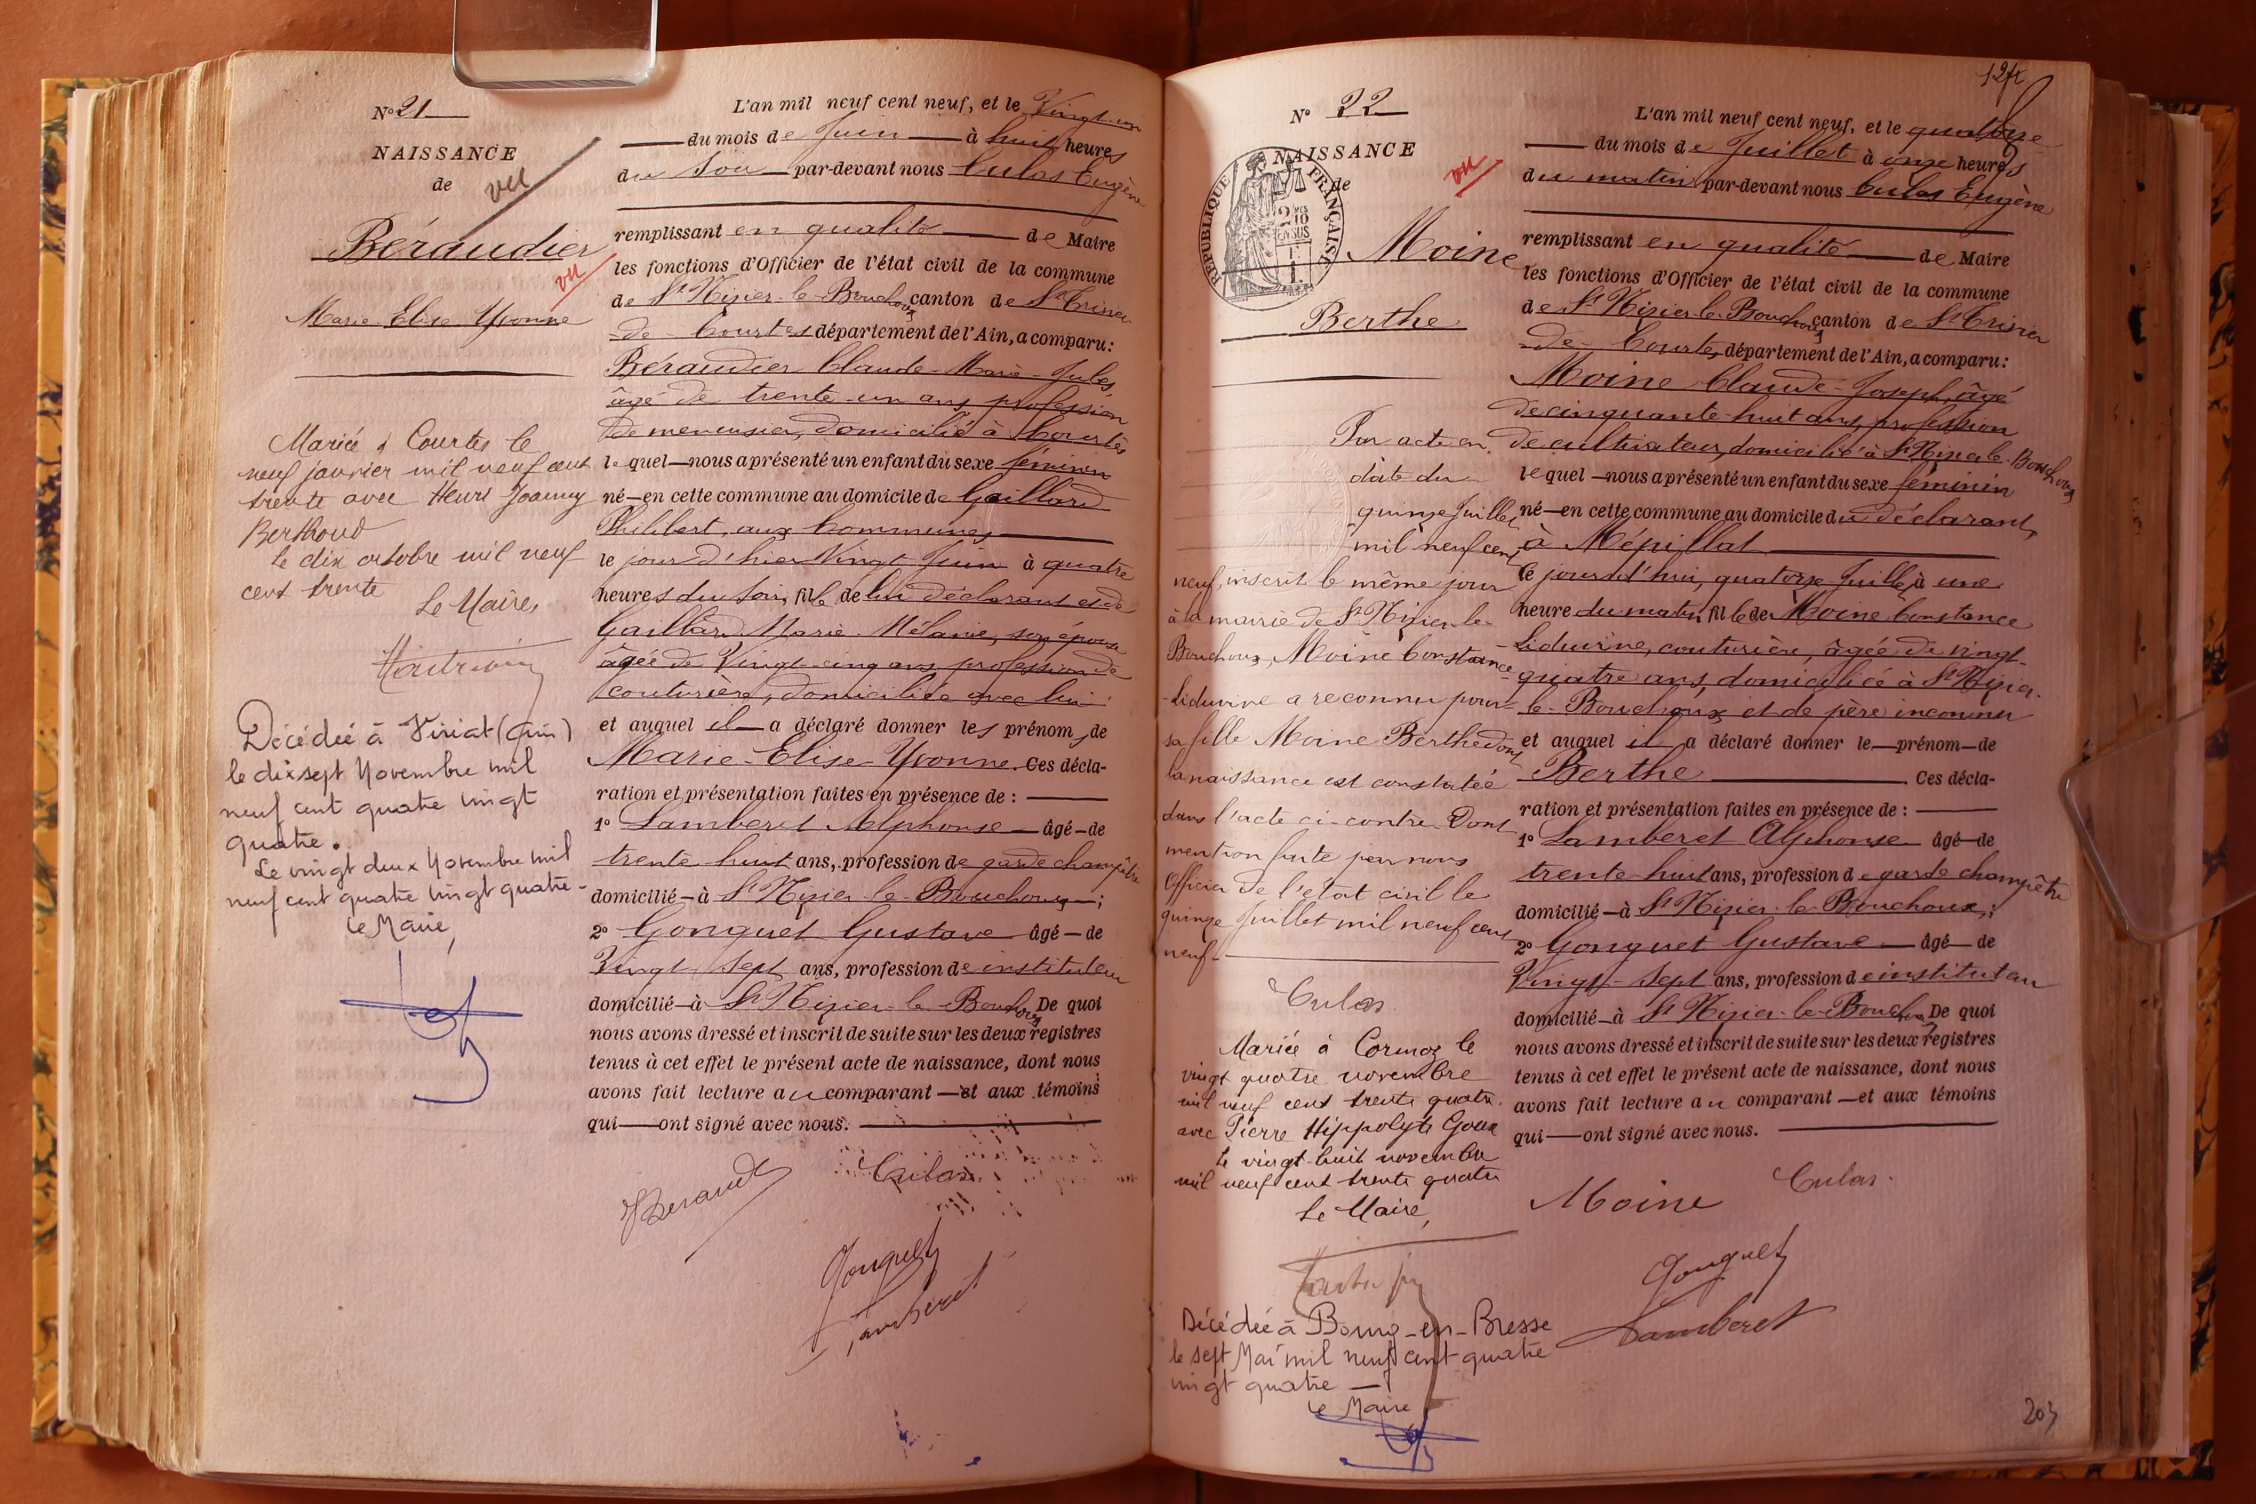 N° 21
NAISSANCE
de
vu
Béraudier
vu
Marie Elise Yvonne
Mariée à Courtes le
neuf janvier mil neuf cent
trente avec Henri Joanny
Berthoud
le dix octobre mil neuf
cent trente
Le Maire,
Décédée à Viriat (Ain)
le dix sept Novembre mil
neuf cent quatre vingt
quatre.
Le vingt deux Novembre mil
neuf cent quatre vingt quatre-
Le Maire,
L'an mil neuf cent neuf, et le Vingt-un
du mois de Juin à huit heures
du soir par-devant nous Culas Eugène
remplissant en qualité de Maire
les fonctions d'Officier de l'état civil de la commune
de St Nizier-le-Bouchoux canton de St Trivier
-de-Courtes département de l'Ain, a comparu:
Béraudier Claude-Marie-Jules,
âgé de trente-un ans, profession
de menuisier, domicilié à Courtes
lequel nous a présenté un enfant du sexe féminin
né en cette commune au domicile de Gaillard
Philibert, aux Communes
le jour d'hier Vingt Juin à quatre
heures du soir, fille de lui déclarant et de
Gaillard Marie-Mélanie, son épouse
âgée de Vingt-cinq ans, profession de
couturière, domiciliée avec lui
et auquel il a déclaré donner les prénoms de
Marie-Elise-Yvonne. Ces décla-
ration et présentation faites en présence de :
1° Lamberet Alphonse âgé de
trente-huit ans, profession de garde champêtre
domicilié à St Nizier-le-Bouchoux ;
2° Gonguet Gustave âgé de
Vingt-sept ans, profession de instituteur
domicilié à St Nizier-le-Bouchoux De quoi
nous avons dressé et inscrit de suite sur les deux registres
tenus à cet effet le présent acte de naissance, dont nous
avons fait lecture au comparant et aux témoins
qui ont signé avec nous.
Culas
Gonguet
Lamberet
N° 22
NAISSANCE
de
vu
REPUBLIQUE FRANÇAISE
2/10 EN SUS
Moine
Berthe
Par acte en
date du
quinze Juillet
mil neuf cent
neuf, inscrit le même jour
à la mairie de St Nizier-le-
Bouchoux, Moine Constance
-Liduvine a reconnu pour
sa fille Moine Berthe dont
la naissance est constatée
dans l'acte ci-contre. Dont
mention faite par nous
Officier de l'état civil le
quinze Juillet mil neuf cent
neuf.
Culas
Mariée à Cormoz le
vingt quatre novembre
mil neuf cent trente quatre
avec Pierre Hippolyte Goux
le vingt-huit novembre
mil neuf cent trente quatre
Le Maire,
Décédée à Bourg-en-Bresse
le sept Mai mil neuf cent quatre
vingt quatre
Le Maire
L'an mil neuf cent neuf, et le quatorze
du mois de Juillet à onze heures
du matin par-devant nous Culas Eugène
remplissant en qualité de Maire
les fonctions d'Officier de l'état civil de la commune
de St Nizier-le-Bouchoux canton de St Trivier
-de-Courtes, département de l'Ain, a comparu:
Moine Claude-Joseph, âgé
de cinquante-huit ans, profession
de cultivateur, domicilié à St Nizier-le-Bouchoux
lequel nous a présenté un enfant du sexe féminin
né en cette commune au domicile du déclarant,
à Mépillat
le jour d'hui, quatorze Juillet à une
heure du matin, fille de Moine Constance
Liduvine, couturière, âgée de vingt-
quatre ans, domiciliée à St Nizier-
le-Bouchoux et de père inconnu
et auquel il a déclaré donner le prénom de
Berthe Ces décla-
ration et présentation faites en présence de :
1° Lamberet Alphonse âgé de
trente-huit ans, profession de garde champêtre
domicilié à St Nizier-le-Bouchoux ;
2° Gonguet Gustave âgé de
Vingt-sept ans, profession de instituteur
domicilié à St Nizier-le-Bouchoux De quoi
nous avons dressé et inscrit de suite sur les deux registres
tenus à cet effet le présent acte de naissance, dont nous
avons fait lecture au comparant et aux témoins
qui ont signé avec nous.
Culas
Moine
Gonguet
Lamberet
203